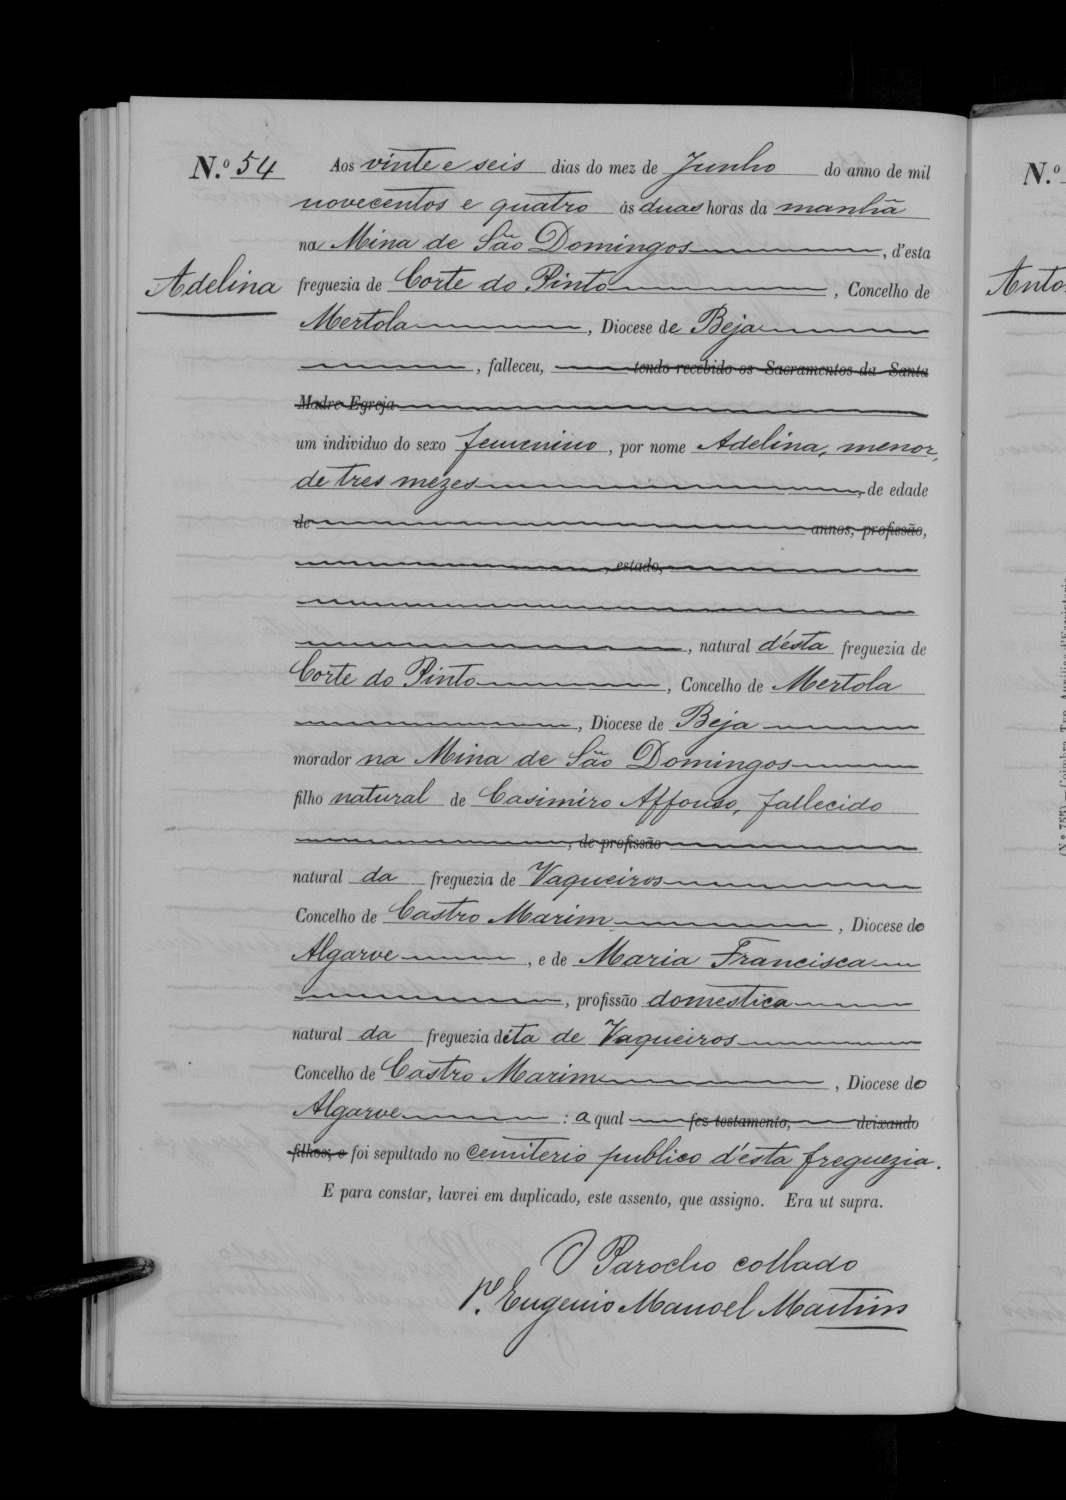 N.º 54
Aos vinte e seis dias do mez de Junho do anno de mil
novecentos e quatro ás duas horas da manhã
na Mina de São Domingos, d'esta
Adelina
freguezia de Corte do Pinto, Concelho de
Mertola, Diocese de Beja
, falleceu, tendo recebido os Sacramentos da Santa
Madre Egreja
um individuo do sexo femenino, por nome Adelina, menor,
de tres mezes, de edade
de annos, profissão,
, estado,
, natural d'ésta freguezia de
Corte do Pinto, Concelho de Mertola
, Diocese de Beja
morador na Mina de São Domingos
filho natural de Casimiro Affonso, fallecido
, de profissão
natural da freguezia de Vaqueiros
Concelho de Castro Marim, Diocese do
Algarve, e de Maria Francisca
, profissão domestica
natural da freguezia dita de Vaqueiros
Concelho de Castro Marim, Diocese do
Algarve : a qual fez testamento, deixando
filhos, e foi sepultado no cemiterio publico d'ésta freguezia.
E para constar, lavrei em duplicado, este assento, que assigno. Era ut supra.
O Parocho collado
P.e Eugenio Manoel Martins
N.º
Anto